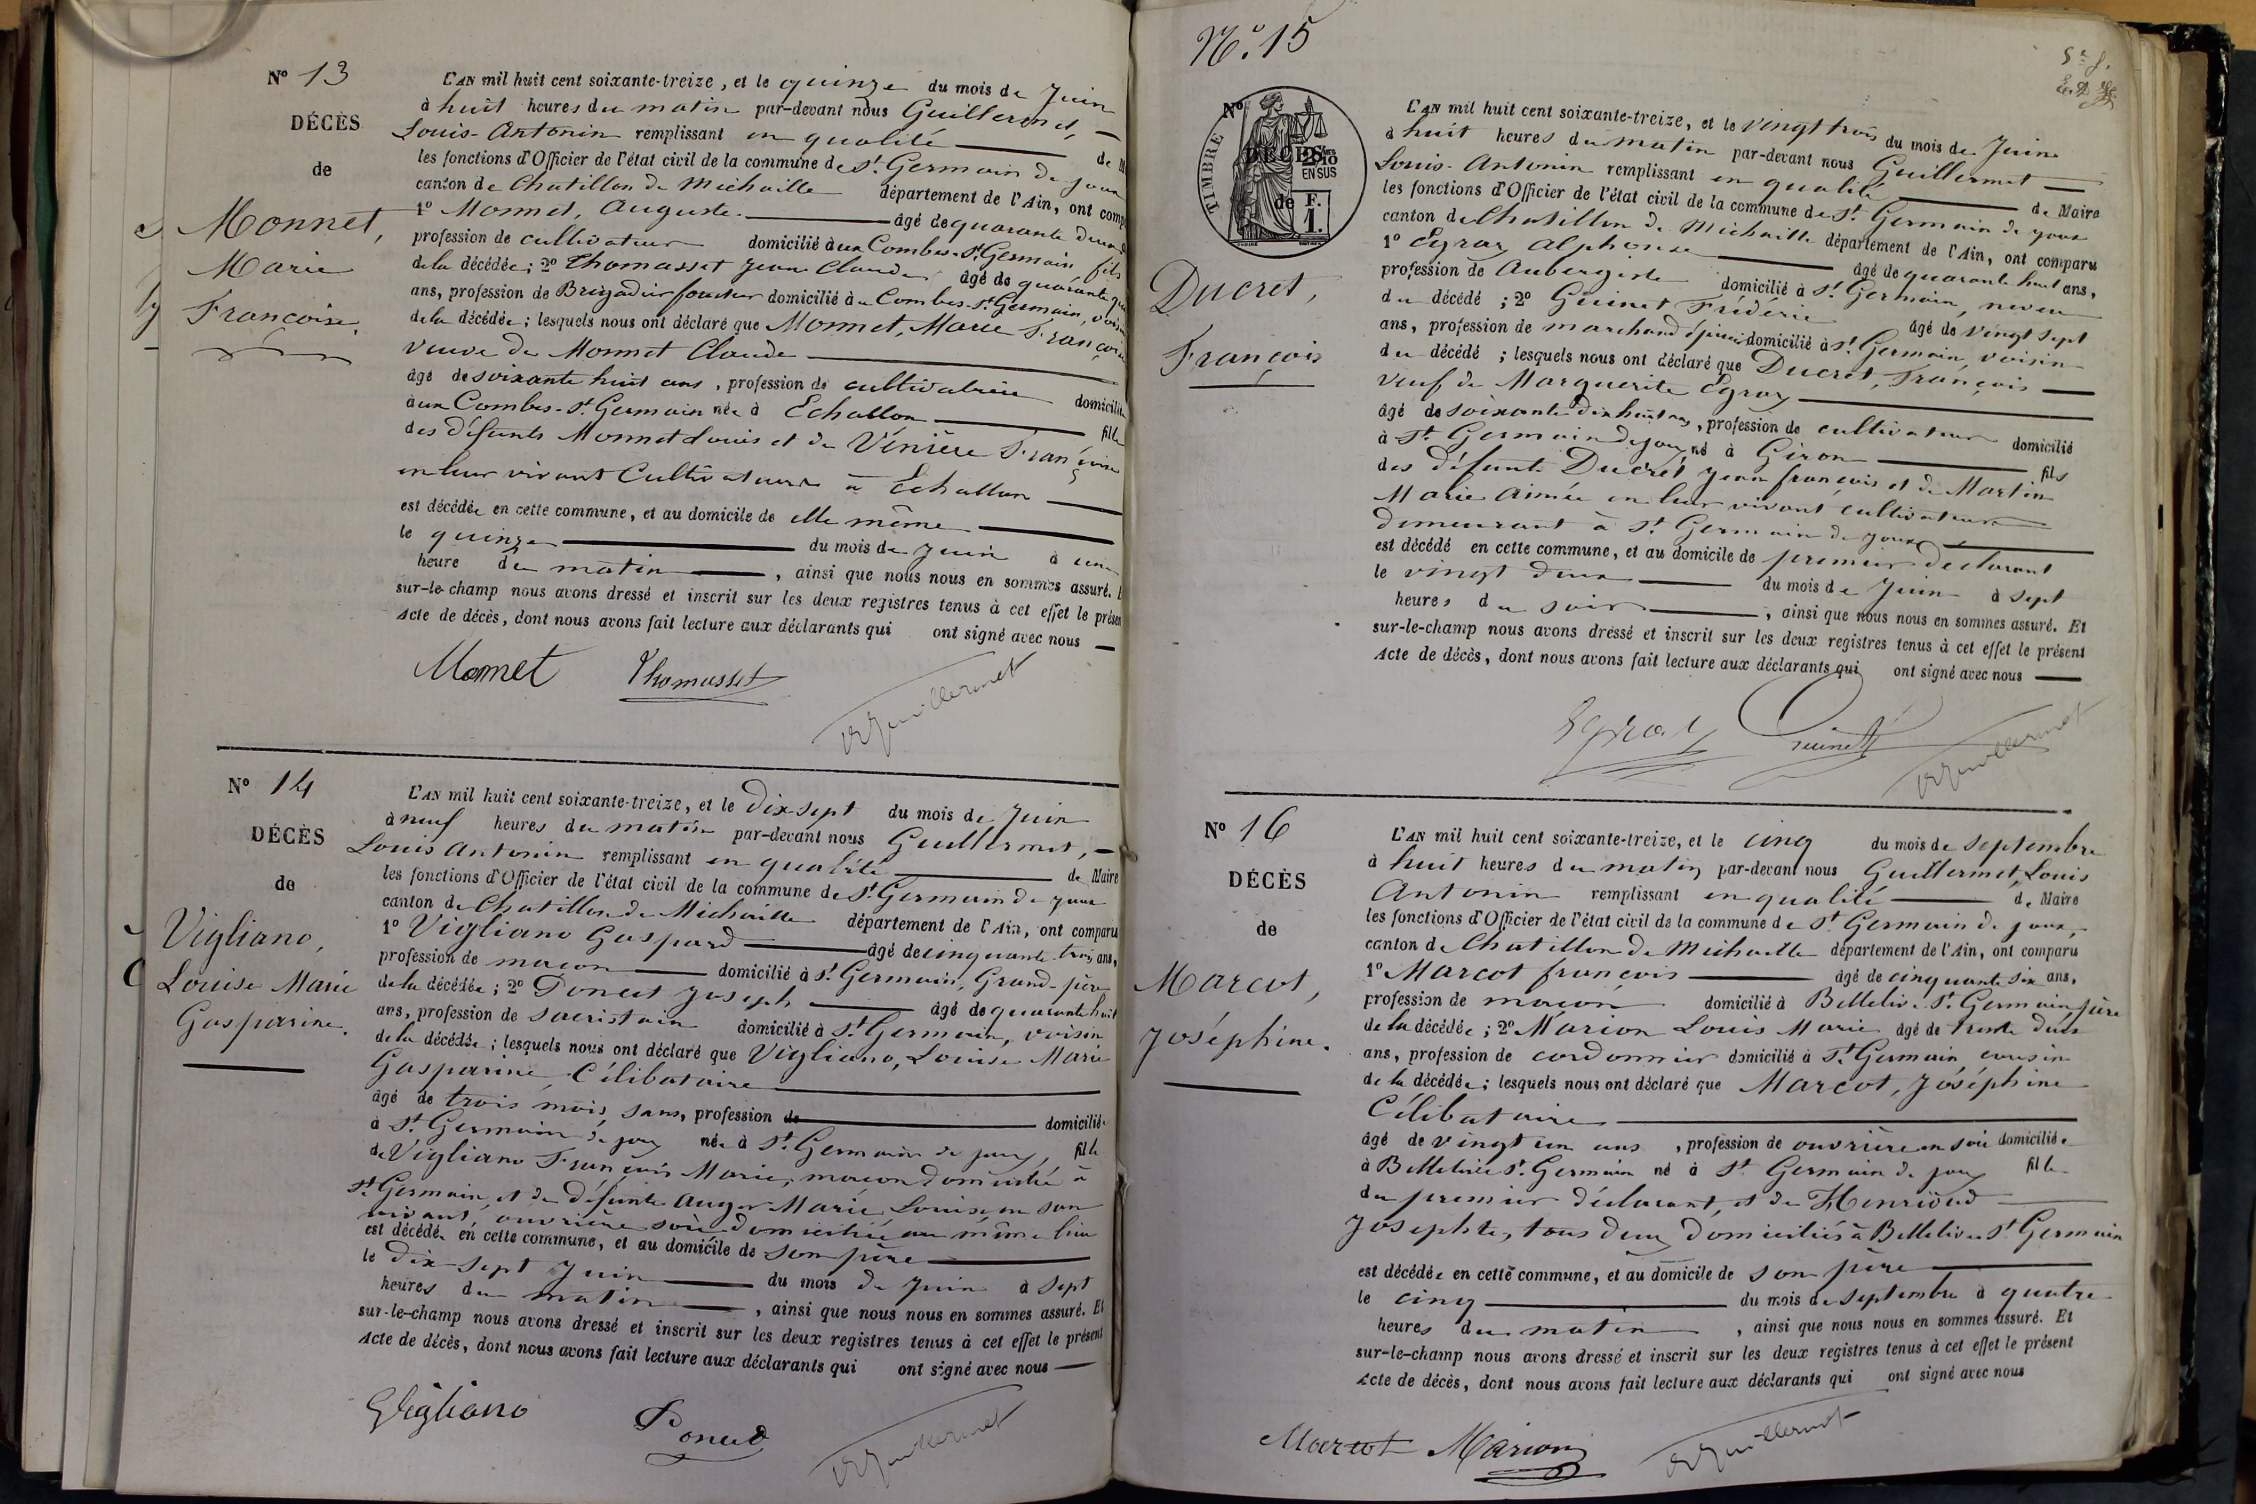 Nº 13
DÉCÈS
de
Monnet,
Marie
Françoise.
L'AN mil huit cent soixante-treize, et le quinze du mois de Juin
à huit heures du matin par-devant nous Guillermet,
Louis-Antonin remplissant en qualité de
les fonctions d'Officier de l'état civil de la commune de St Germain de joux
canton de Chatillon de Michaille département de l'Ain, ont comp
1º Monnet, Auguste. âgé de quarante deux
profession de cultivateur domicilié aux Combes-St Germain, fils
de la décédée; 2º Thomasset Jean Claude âgé de quarante
ans, profession de Brigadier forestier domicilié aux Combes-St Germain, voisin
de la décédée; lesquels nous ont déclaré que Monnet, Marie Françoise
veuve de Monnet Claude
âgé de soixante huit ans, profession de cultivatrice domicilié
aux Combes-St Germain née à Echallon fille
des défunts Monnet Louis et de Vénière Françoise
en leur vivant Cultivateurs à Echallon
est décédée en cette commune, et au domicile de elle même
le quinze du mois de Juin à une
heure du matin, ainsi que nous nous en sommes assuré. E
sur-le-champ nous avons dressé et inscrit sur les deux registres tenus à cet effet le présen
Acte de décès, dont nous avons fait lecture aux déclarants qui ont signé avec nous
Monnet Thomasset Guillermet
Nº 14
DÉCÈS
de
Vigliano,
Louise Marie
Gasparine.
L'AN mil huit cent soixante-treize, et le Dix-sept du mois de Juin
à neuf heures du matin par-devant nous Guillermet,
Louis Antonin remplissant en qualité de Maire
les fonctions d'Officier de l'état civil de la commune de St Germain de joux
canton de Chatillon de Michaille département de l'Ain, ont comparu
1º Vigliano Gaspard âgé de cinquante trois ans,
profession de maçon domicilié à St Germain, Grand-père
de la décédée; 2º Poncet Joseph âgé de quarante huit
ans, profession de sacristain domicilié à St Germain, voisin
de la décédée; lesquels nous ont déclaré que Vigliano, Louise Marie
Gasparine, Célibataire
âgé de trois mois, sans, profession de domiciliée
à St Germain de joux née à St Germain de joux, fille
de Vigliano François Marie, maçon domicilié à
St Germain, et de défunte Auger Marie Louise en son
vivant, ouvrière soie domiciliée au même lieu
est décédée en cette commune, et au domicile de son père
le Dix-sept Juin du mois de Juin à sept
heures du matin, ainsi que nous nous en sommes assuré. Et
sur-le-champ nous avons dressé et inscrit sur les deux registres tenus à cet effet le présent
Acte de décès, dont nous avons fait lecture aux déclarants qui ont signé avec nous
Vigliano Poncet Guillermet
Nº. 15
Nº
DÉCÈS
de
TIMBRE
EN SUS
F.
1.
Ducret,
François
L'AN mil huit cent soixante-treize, et le vingt trois du mois de Juin
à huit heures du matin par-devant nous Guillermet
Louis-Antonin remplissant en qualité de Maire
les fonctions d'Officier de l'état civil de la commune de St Germain de joux
canton de Chatillon de Michaille département de l'Ain, ont comparu
1º Egraz Alphonse âgé de quarante huit ans,
profession de Aubergiste domicilié à St Germain, neveu
du décédé; 2º Guinet Frédéric âgé de vingt sept
ans, profession de marchand épicier domicilié à St Germain, voisin
du décédé; lesquels nous ont déclaré que Ducret, François
veuf de Marguerite Egraz
âgé de soixante dix huit ans, profession de cultivateur domicilié
à St Germain de joux, né à Giron fils
des défunts Ducret Jean françois et de Martin
Marie Aimée en leur vivant cultivateurs
demeurant à St Germain de joux
est décédé en cette commune, et au domicile de premier déclarant
le vingt deux du mois de Juin à sept
heures du soir, ainsi que nous nous en sommes assuré. Et
sur-le-champ nous avons dressé et inscrit sur les deux registres tenus à cet effet le présent
Acte de décès, dont nous avons fait lecture aux déclarants qui ont signé avec nous
Egraz Guinet Guillermet
Nº 16
DÉCÈS
de
Marcot,
Joséphine.
L'AN mil huit cent soixante-treize, et le cinq du mois de Septembre
à huit heures du matin par-devant nous Guillermet, Louis
Antonin remplissant en qualité de Maire
les fonctions d'Officier de l'état civil de la commune de St Germain de joux,
canton de Chatillon de Michaille département de l'Ain, ont comparu
1º Marcot françois âgé de cinquante six ans,
profession de maçon domicilié à Belleliv. St Germain, père
de la décédée; 2º Marion Louis Marie âgé de trente deux
ans, profession de cordonnier domicilié à St Germain, cousin
de la décédée; lesquels nous ont déclaré que Marcot, Joséphine
Célibataire
âgé de vingt un ans, profession de ouvrière en soie domiciliée
à St Germain né à St Germain de joux fille
du premier déclarant, et de Henrioud
Josephte, tous deux domiciliés à St Germain
est décédée en cette commune, et au domicile de son père
le cinq du mois de Septembre à quatre
heures du matin, ainsi que nous nous en sommes assuré. Et
sur-le-champ nous avons dressé et inscrit sur les deux registres tenus à cet effet le présent
Acte de décès, dont nous avons fait lecture aux déclarants qui ont signé avec nous
Marcot Marion Guillermet